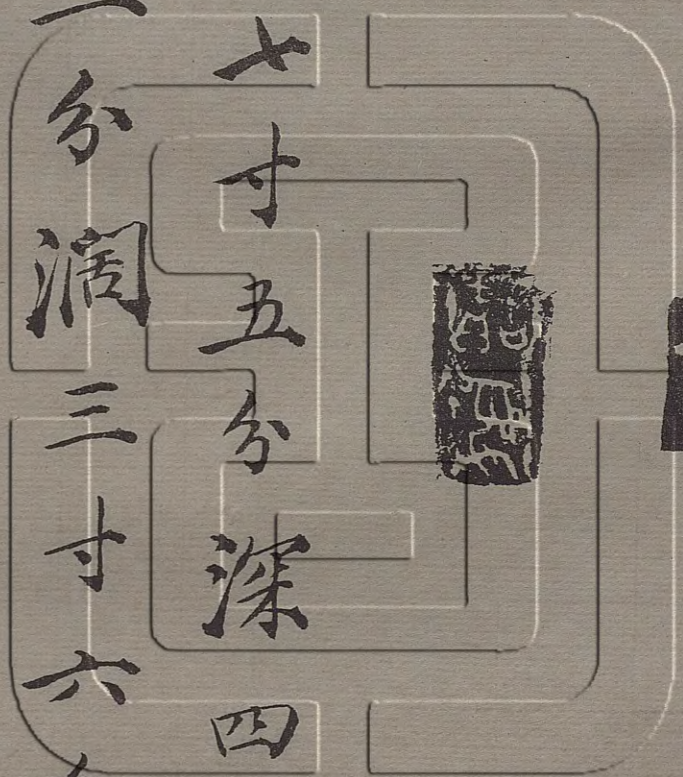 七寸五分深四
分濶三寸六